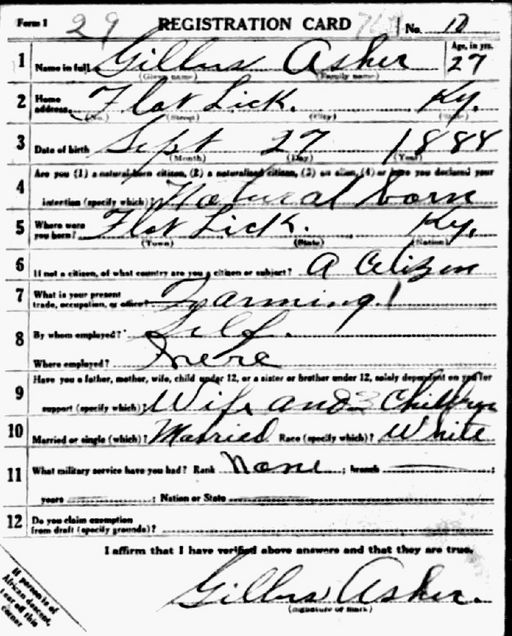 Form 1 29 REGISTRATION CARD No. 10
1 Name in full Gillus Asher Age, in yrs. 27
(Given name) (Family name)
2 Home address Flat Lick. Ky.
(No.) (Street) (City) (State)
3 Date of birth Sept 27 1888
(Month) (Day) (Year)
4 Are you (1) a natural-born citizen, (2) a naturalized citizen, (3) an alien, (4) or have you declared your
intention (specify which)? Natural born
5 Where were you born? Flat Lick. Ky.
(Town) (State) (Nation)
6 If not a citizen, of what country are you a citizen or subject? A Citizen
7 What is your present trade, occupation, or office? Farming
8 By whom employed? Self.
Where employed?
9 Have you a father, mother, wife, child under 12, or a sister or brother under 12, solely dependent on you for
support (specify which)? Wife and 3 Children
10 Married or single (which)? Married Race (specify which)? White
11 What military service have you had? Rank None ; branch ;
years ; Nation or State
12 Do you claim exemption from draft (specify grounds)?
I affirm that I have verified above answers and that they are true.
Gillus Asher.
(Signature or mark)
If person is of
African descent,
tear off this
corner